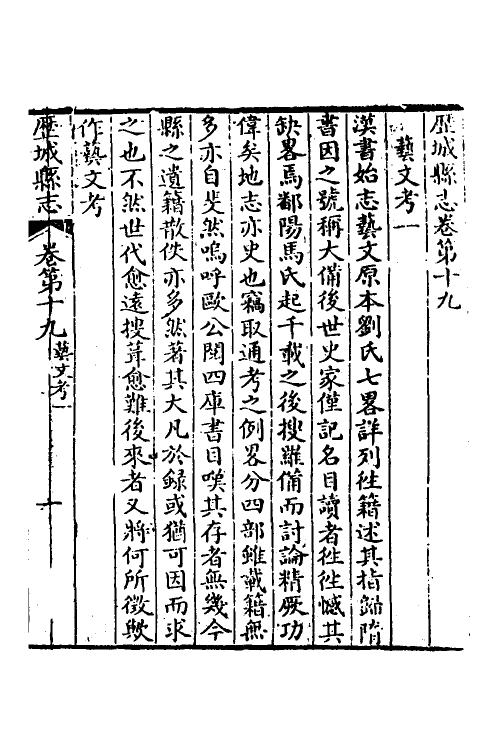 歷城縣志卷第十九
藝文考一
漢書始志藝文原本劉氏七畧詳列徃籍述其指歸隋
書因之號稱大備後世史家僅記名目讀者徃徃憾其
缺畧焉鄱陽馬氏起千載之後搜羅備而討論精厥功
偉矣地志亦史也竊取通考之例畧分四部雖載籍無
多亦自斐然嗚呼歐公閱四庫書目嘆其存者無幾今
縣之遺籍散佚亦多然著其大凡於録或猶可因而求
之也不然世代愈遠搜葺愈難後來者又將何所徴歟
作藝文考
歷城縣志
卷第十九
藝文考一
一